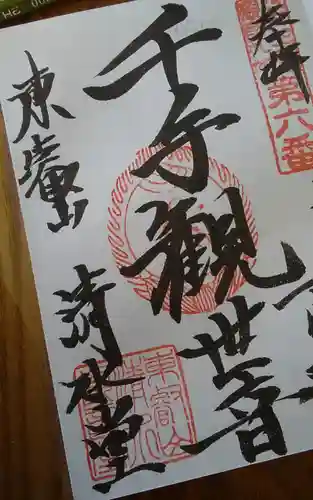 奉拝
第六番
千手観世音
東叡山
清水堂
東叡山
清水堂